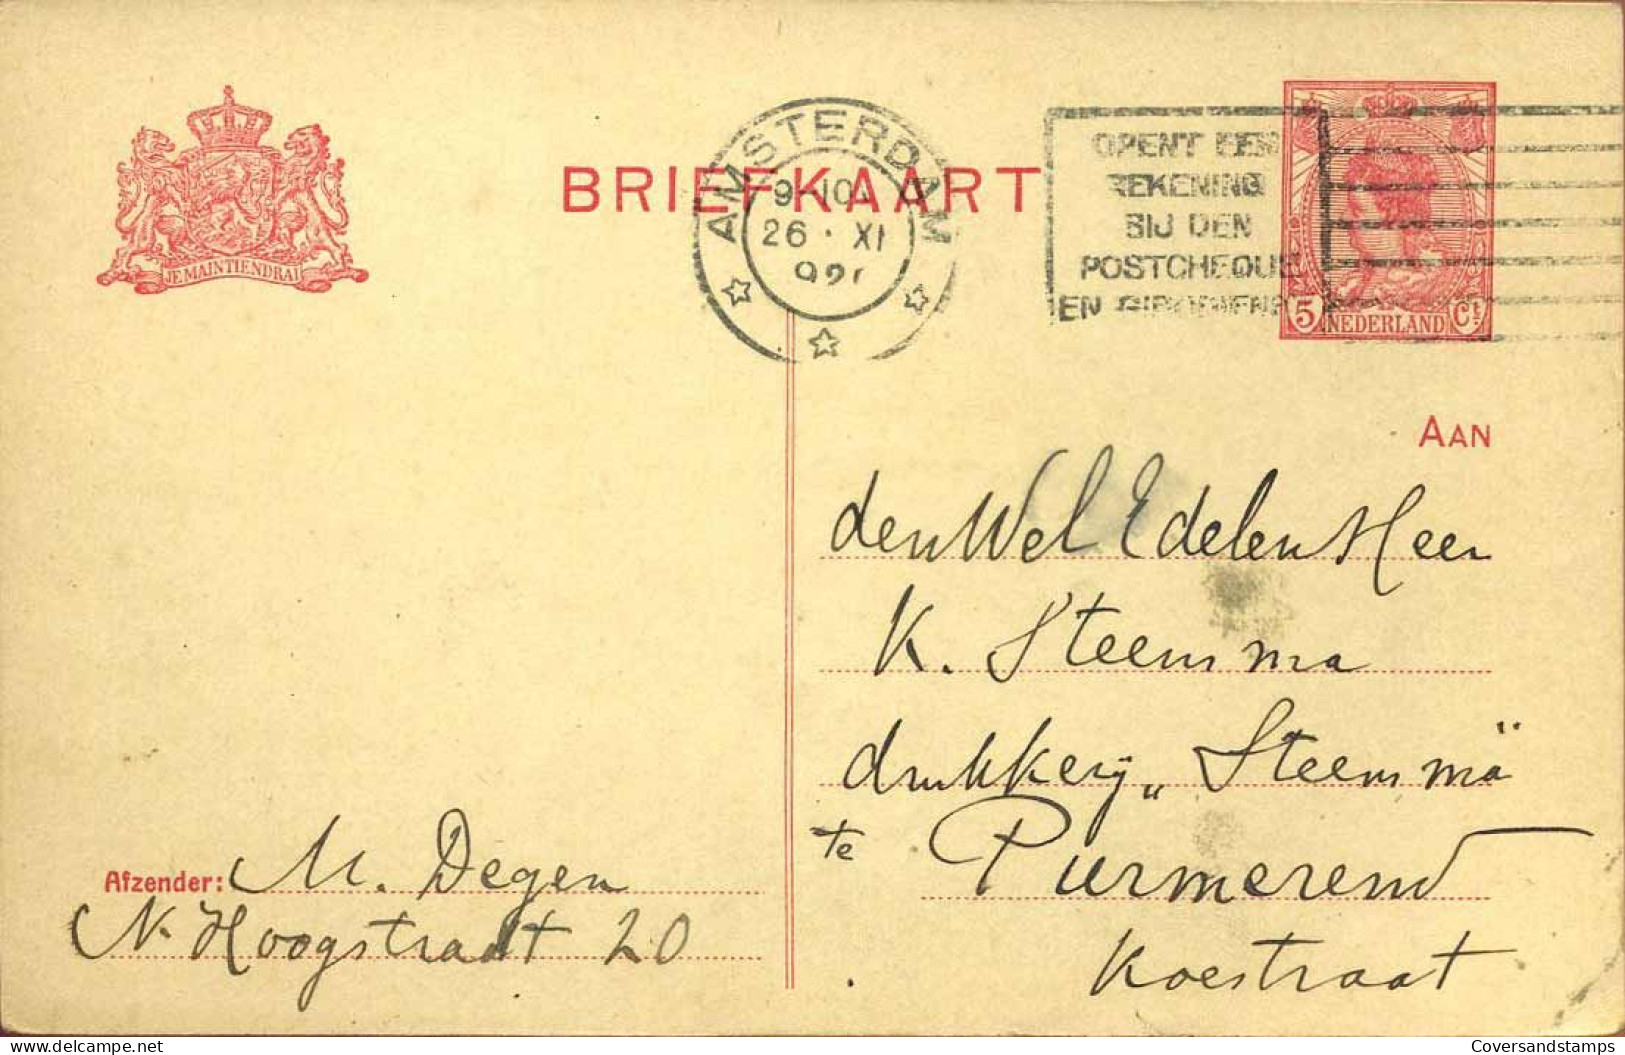 BRIEFKAART
JE MAINTIENDRAI
AMSTERDAM
26 · XI
OPENT EEN
REKENING
BIJ DEN
POSTCHEQUE
EN
5 NEDERLAND Ct.
AAN
den Wel Edelen Heer
K. Steensma
drukkerij „Steensma"
te Purmerend
Koestraat
Afzender: M. Degen
N. Hoogstraat 20
Coversandstamps